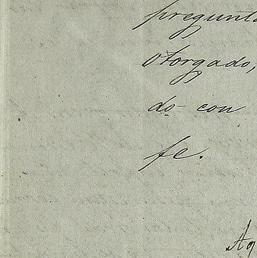 pregunt
otorgado,
do con
fe.
Ag